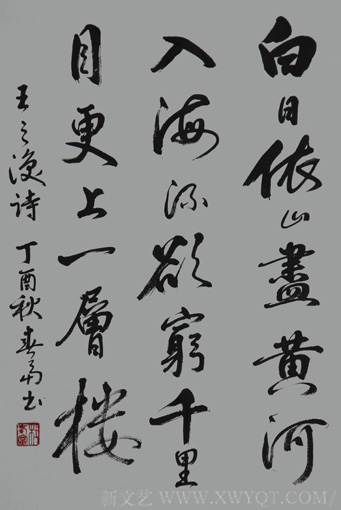 白日依山盡黄河
入海流欲窮千里
目更上一層楼
王之涣诗 丁酉秋春书
新文艺 WWW.XWYQT.COM/